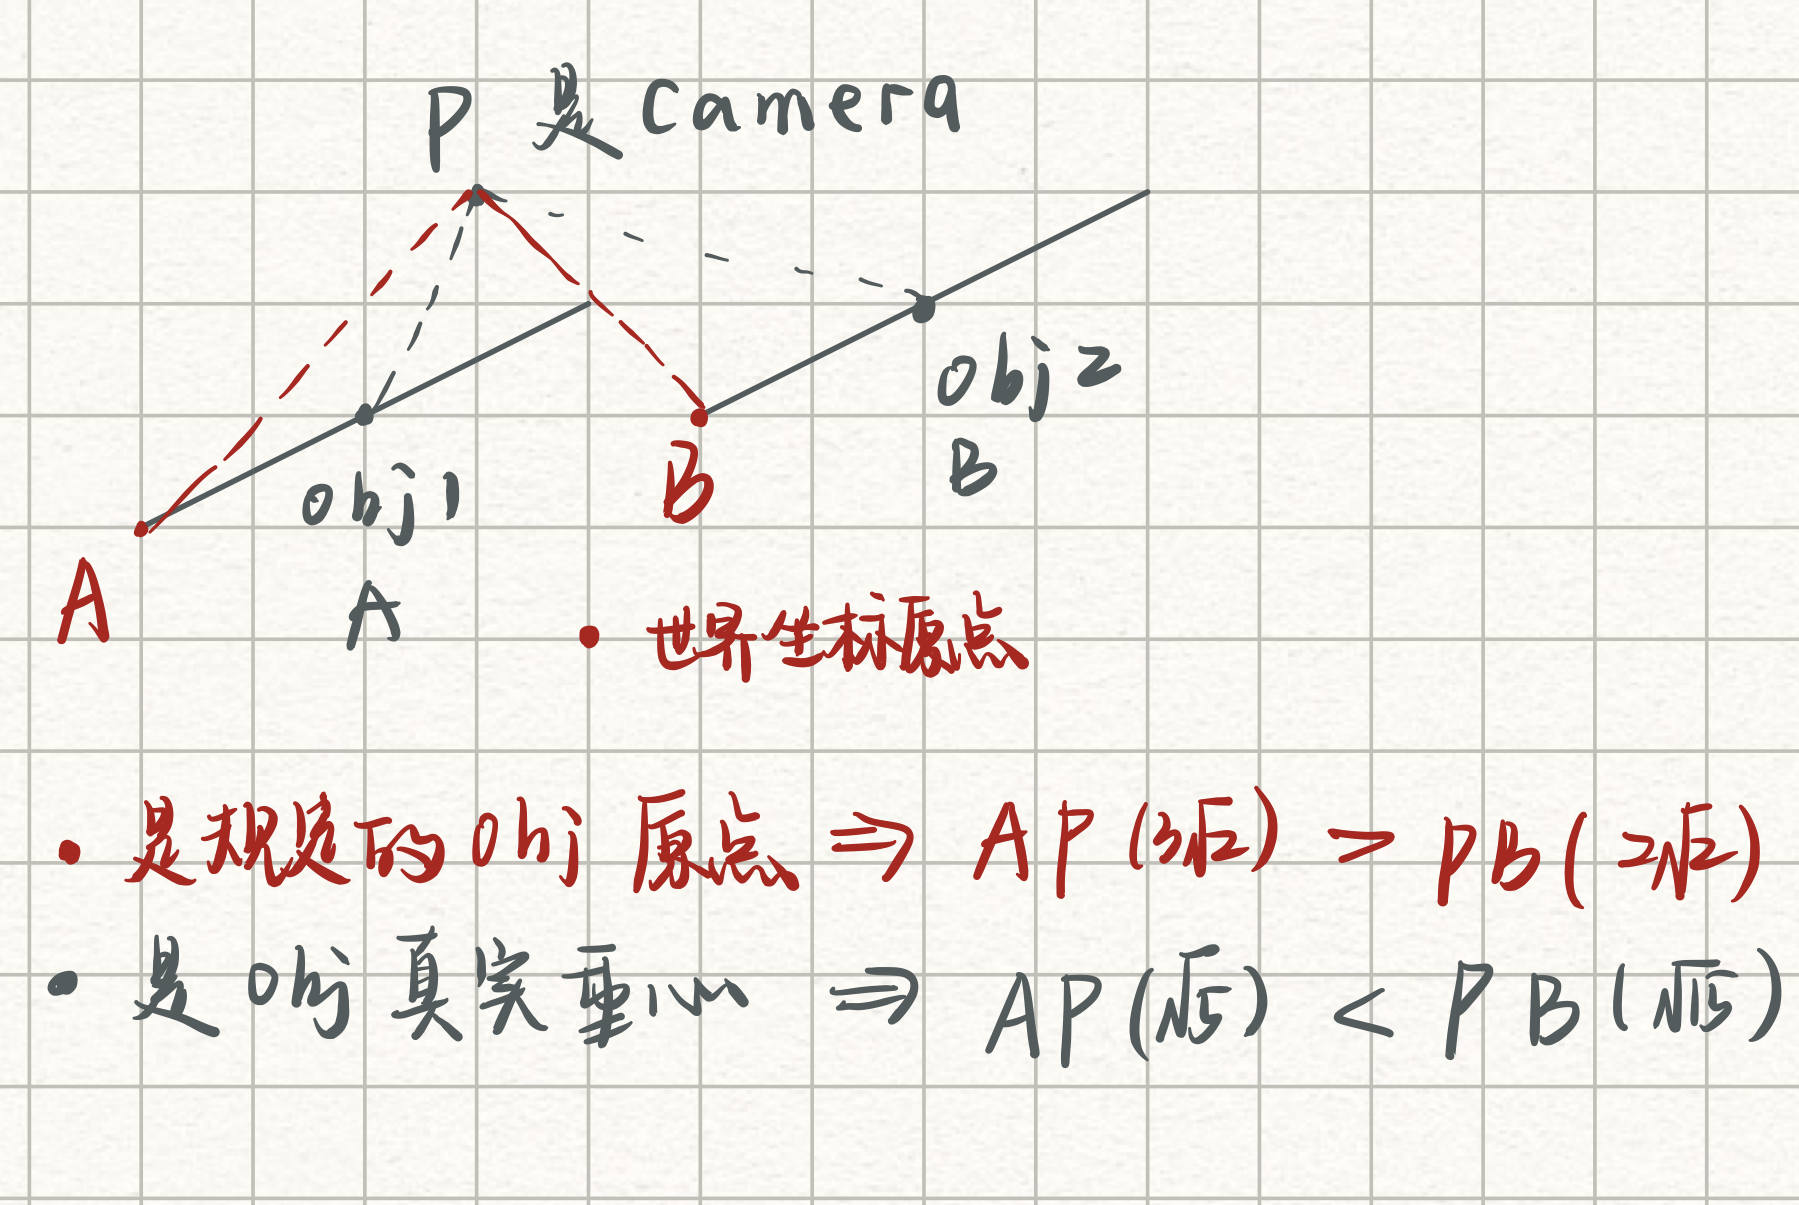 P 是 Camera
obj2
B
B
obj1
A
A
世界坐标原点
• 是规定的 Obj 原点 ⇒ AP (3√2) > PB (2√2)
• 是 Obj 真实重心 ⇒ AP (√5) < PB (√15)